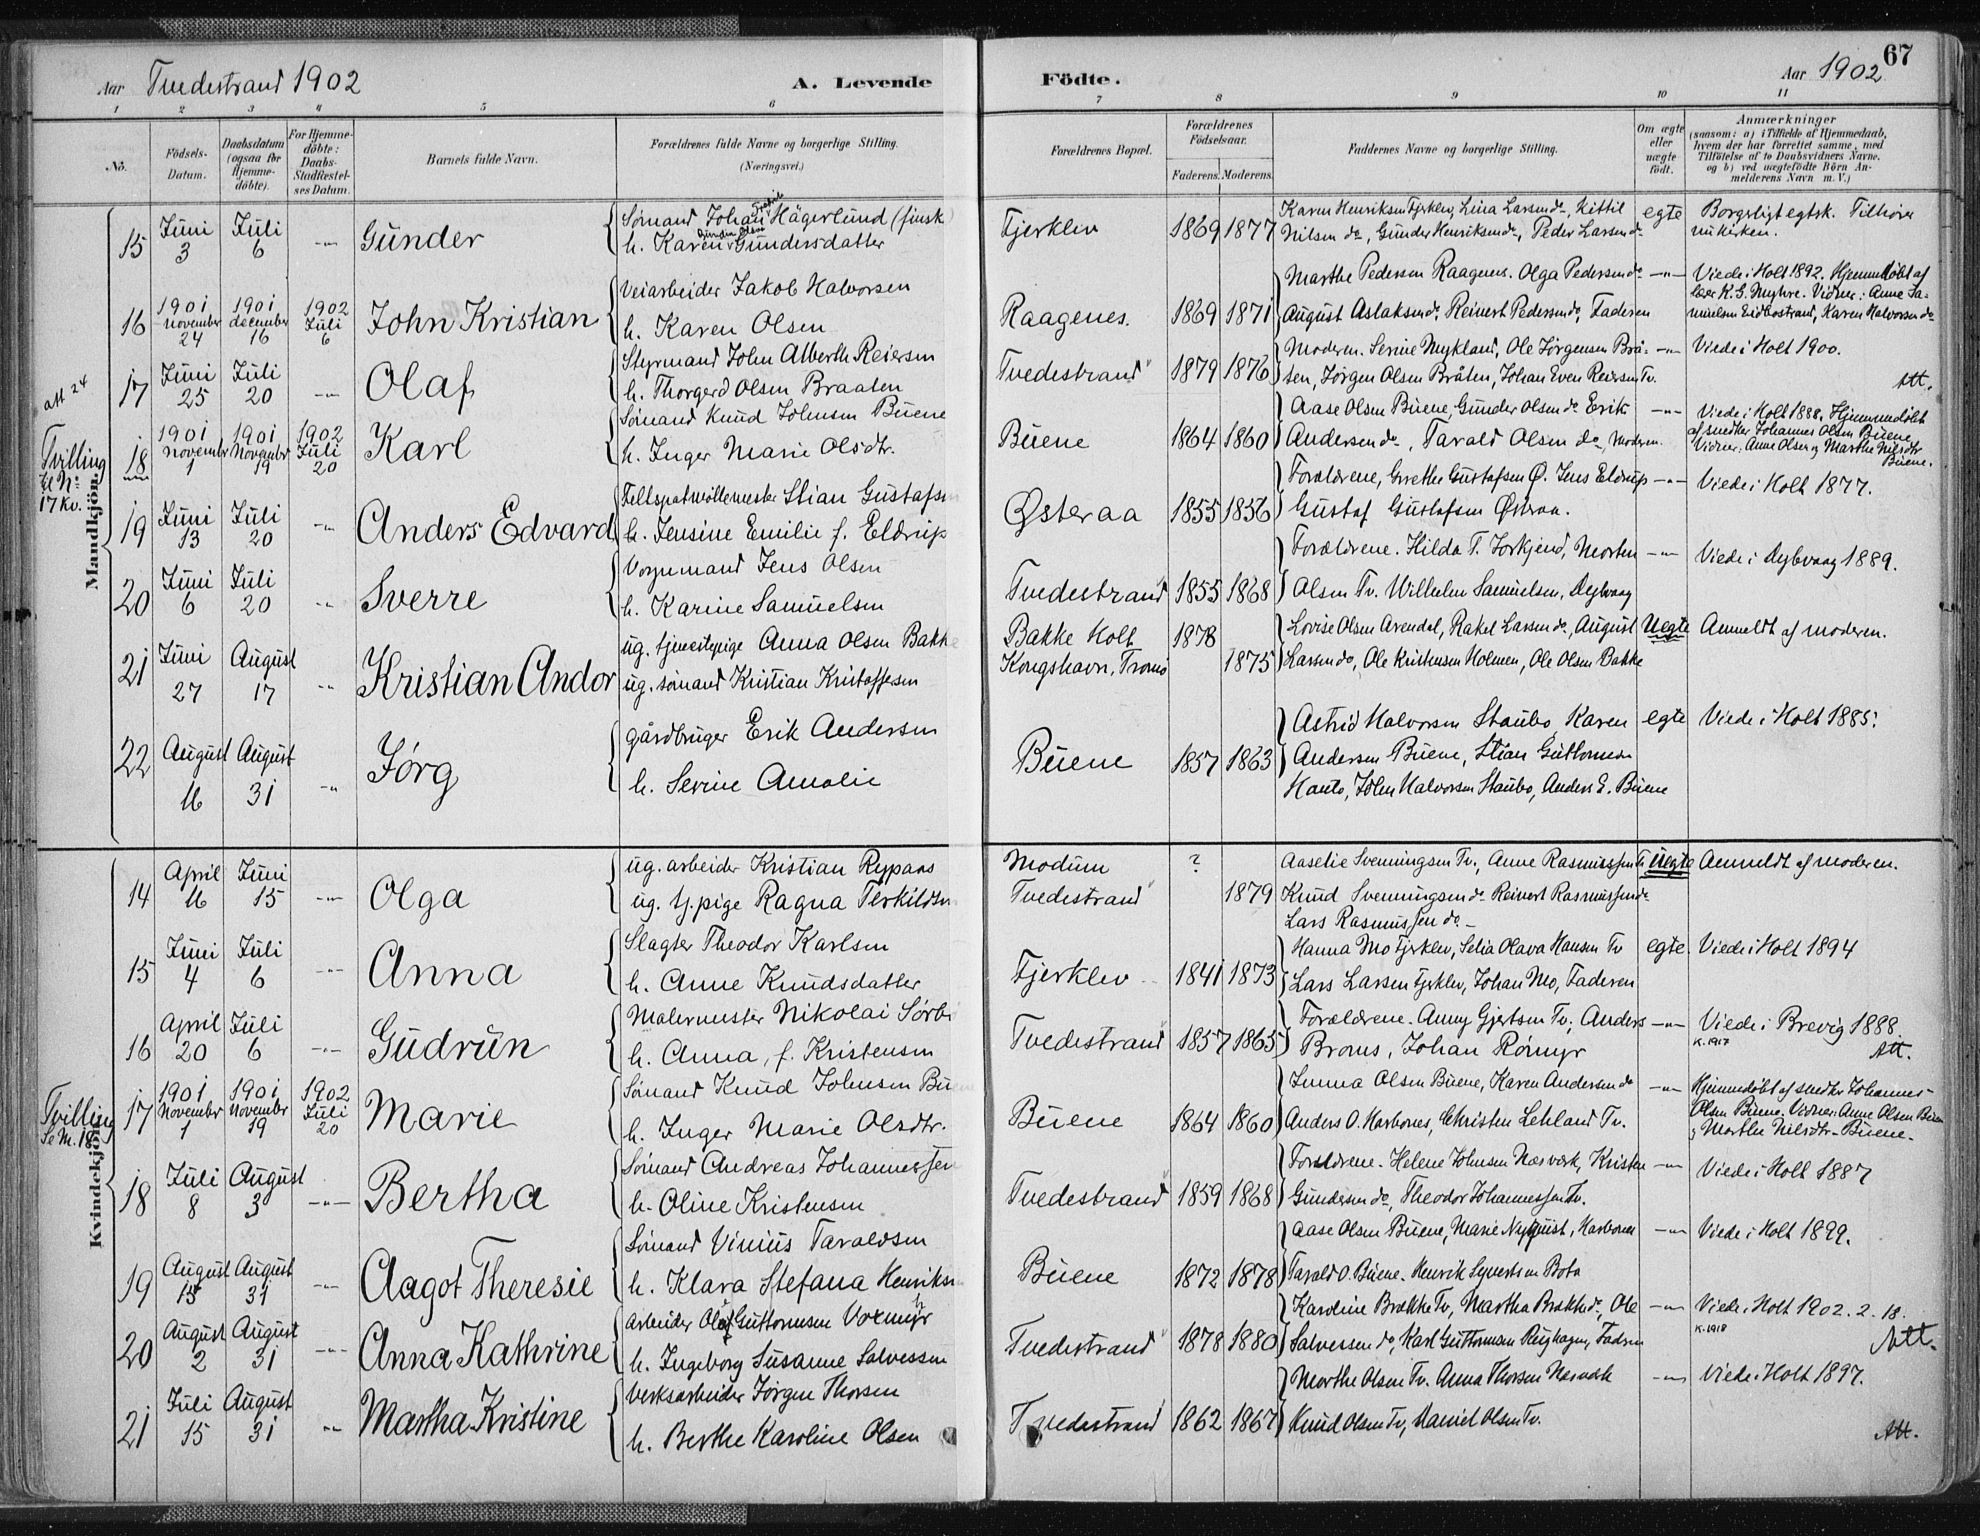 Aar Tvedestrand 1902 A. Levende Födte. Aar 1902 67
1 2 3 4 5 6 7 8 9 10 11
No.
Födsels-Datum.
Daabsdatum (ogsaa for Hjemme-döbte).
For Hjemme-döbte: Daabs-Stadfæstel-ses Datum.
Barnets fulde Navn.
Forældrenes fulde Navne og borgerlige Stilling. (Næringsvei.)
Forældrenes Bopæl.
Forældrenes Födselsaar.
Faderens. Moderens.
Faddernes Navne og borgerlige Stilling.
Om ægte eller uægte födt.
Anmærkninger
(saasom: a) i Tilfælde af Hjemmedaab,
hvem der har forrettet samme, med
Tilföielse af to Daabsvidners Navne,
og b) ved uægtefödte Börn An-
melderens Navn m. V.)
Mandkjön.
15 Juni 3 Juli 6 -"- Gunder
Sømand Johan Hägerlund (finsk)
h. Karen Gundersdatter
Fjerklev 1869 1877
Karen Henriksen Fjerklev, Lina Larsen do, Kittil
Nilsen do, Gunder Henriksen do, Peder Larsen do
egte Borgerligt egtsk. Tilhører
nu kirken.
16 1901 november 24 1901 december 16 1902 Juli 6 John Kristian
Veiarbeider Jakob Halvorsen
h. Karen Olsen
Raagenes. 1869 1871
Marthe Pedersen Raagenes. Olga Pedersen do
August Aslaksen do. Reinert Pedersen do, Faderen
-"- Viede i Holt 1892. Hjemmedøbt af
lærer K. G. Myhre. Vidner: Anne Sa-
muelsen Eidbostrand, Karen Halvorsen do
att 24
17 Juni 25 Juli 20 -"- Olaf
Styrmand John Alberth Reiersen
h. Thorgerd Olsen Braaten
Tvedestrand 1879 1876
Moderen. Serine Mykland, Ole Jørgensen Brå-
ten, Jørgen Olsen Bråten, Johan Even Reiersen Tv.
-"- Viede i Holt 1900.
Att.
Tvilling
til No
17 Kv.
18 1901 Novembr 1 1901 Novembr 19 1902 Juli 20 Karl
Sømand Knud Johnsen Buene
h. Inger Marie Olsdtr.
Buene 1864 1860
Aase Olsen Buene, Gunder Olsen do. Erik
Andersen do, Tarald Olsen do, moderen.
-"- Viede i Holt 1888. Hjemmedøbt
af snedker Johannes Olsen Buene
Vidner: Anne Olsen og Marthe Nilsdtr
Buene.
19 Juni 13 Juli 20 -"- Anders Edvard
Feltspatmøllemester Stian Gustafsen
h. Jensine Emilie f. Eldrup
Østeraa 1855 1856
Forældrene, Grethe Gustafsen Ø. Jens Eldrup
Gustaf Gustafsen Østeraa.
-"- Viede i Holt 1877.
20 Juni 6 Juli 20 -"- Sverre
Vognmand Jens Olsen
h. Karine Samuelsen
Tvedestrand 1855 1868
Forældrene. Hilda T. Torkjend, Morten
Olsen Tv. Wilhelm Samuelsen, Dybvaag
-"- Viede i Dybvaag 1889.
21 Juni 27 August 17 -"- Kristian Andor
ug. tjenestepige Anna Olsen Bakke
ug. sømand Kristian Kristoffersen
Bakke Holt 1878
Kongshavn, Tromø 1875
Lovise Olsen Arendal, Rakel Larsen do, August
Larsen do, Ole Kristensen Holmen, Ole Olsen Bakke
Uegte Anmeldt af moderen.
22 August 16 August 31 -"- Jørg
gårdbruger Erik Andersen
h. Serine Amalie
Buene 1857 1863
Astrid Halvorsen Staubo, Karen
Andersen Buene, Stian Guttormsen
Hauto, John Halvorsen Staubo, Anders E. Buene
egte Viede i Holt 1885.
Kvindekjön.
14 April 16 Juni 15 -"- Olga
ug. arbeider Kristian Rypaas
ug. tj.pige Ragna Terkildsen
Modum ?
Tvedestrand 1879
Aaselie Svenningsen Tv., Anne Rasmussen Tv
Knud Svenningsen do Reinert Rasmussen do
Lars Rasmussen do
Uegte Anmeldt af moderen.
15 Juni 4 Juli 6 -"- Anna
Slagter Theodor Karlsen
h. Anne Knudsdatter
Fjerklev 1841 1873
Hanna Mo Fjerklev, Selia Olava Hansen Tv
Lars Larsen Fjerklev, Johan Mo, Faderen
egte. Viede i Holt 1894
16 April 20 Juli 6 -"- Gudrun
Malermester Nikolai Sørbø
h. Anna, f. Kristensen
Tvedestrand 1857 1865
Forældrene. Anny Gjertsen Tv., Anders
Broms, Johan Rømyr
-"- Viede i Brevig 1888.
K. 1917 Att.
Tvilling
Se M. 18
17 1901 November 1 1901 November 19 1902 Juli 20 Marie
Sømand Knud Johnsen Buene
h. Inger Marie Olsdtr.
Buene 1864 1860
Emma Olsen Buene, Karen Andersen do
Anders O. Harbones, Christen Lehland Tv.
-"- Hjemmedøbt af snedker Johannes
Olsen Buene. Vidner: Anne Olsen Buene
og Marthe Nilsdtr. Buene.
18 Juli 8 August 3 -"- Bertha
Sømand Andreas Johannessen
h. Oline Kristensen
Tvedestrand 1859 1868
Forældrene. Helene Johnsen Næsværk, Kristen
Gundersen do, Theodor Johannessen Tv.
-"- Viede i Holt 1887
19 August 15 August 31 -"- Aagot Theresie
Sømand Vinius Taraldsen
h. Klara Stefana Henriksen
Buene 1872 1878
Aase Olsen Buene, Marie Nyquist, Harbones
Tarald O. Buene. Henrik Syvertsen Bota
-"- Viede i Holt 1899.
20 August 2 August 31 -"- Anna Kathrine
Arbeider Olaf Guttormsen Voxmyr
h. Ingeborg Susanne Salvessen
Tvedestrand 1878 1880
Karoline Brække Tv, Martha Brække do, Ole
Salvessen do, Karl Guttormsen, Faderen
-"- Viede i Holt 1902. 2. 18.
K. 1918 Att.
21 Juli 15 August 31 -"- Martha Kristine
Verksarbeider Jørgen Thorsen
h. Berthe Karoline Olsen
Tvedestrand 1862 1867
Marthe Olsen Tv. Anna Thorsen Næsværk
Knud Olsen Tv, Daniel Olsen Tv.
-"- Viede i Holt 1897.
Att.